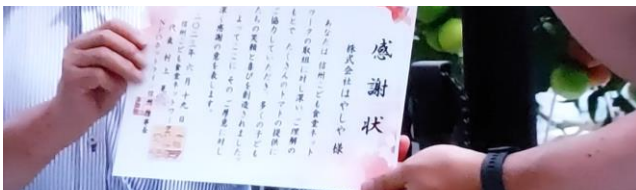 感謝状
株式会社はやしや 様
あなたは 信州こども食堂ネット
ワークの取組に対し深い ご理解の
もとで たくさんのトマトの提供に
ご協力していただき 多くの子ども
たちの笑顔と喜びを創造されました
よってここに その ご厚意に対し
深く感謝の意を表します
二〇二三年 六月 十九日
信州こども食堂ネットワーク
代表 村上